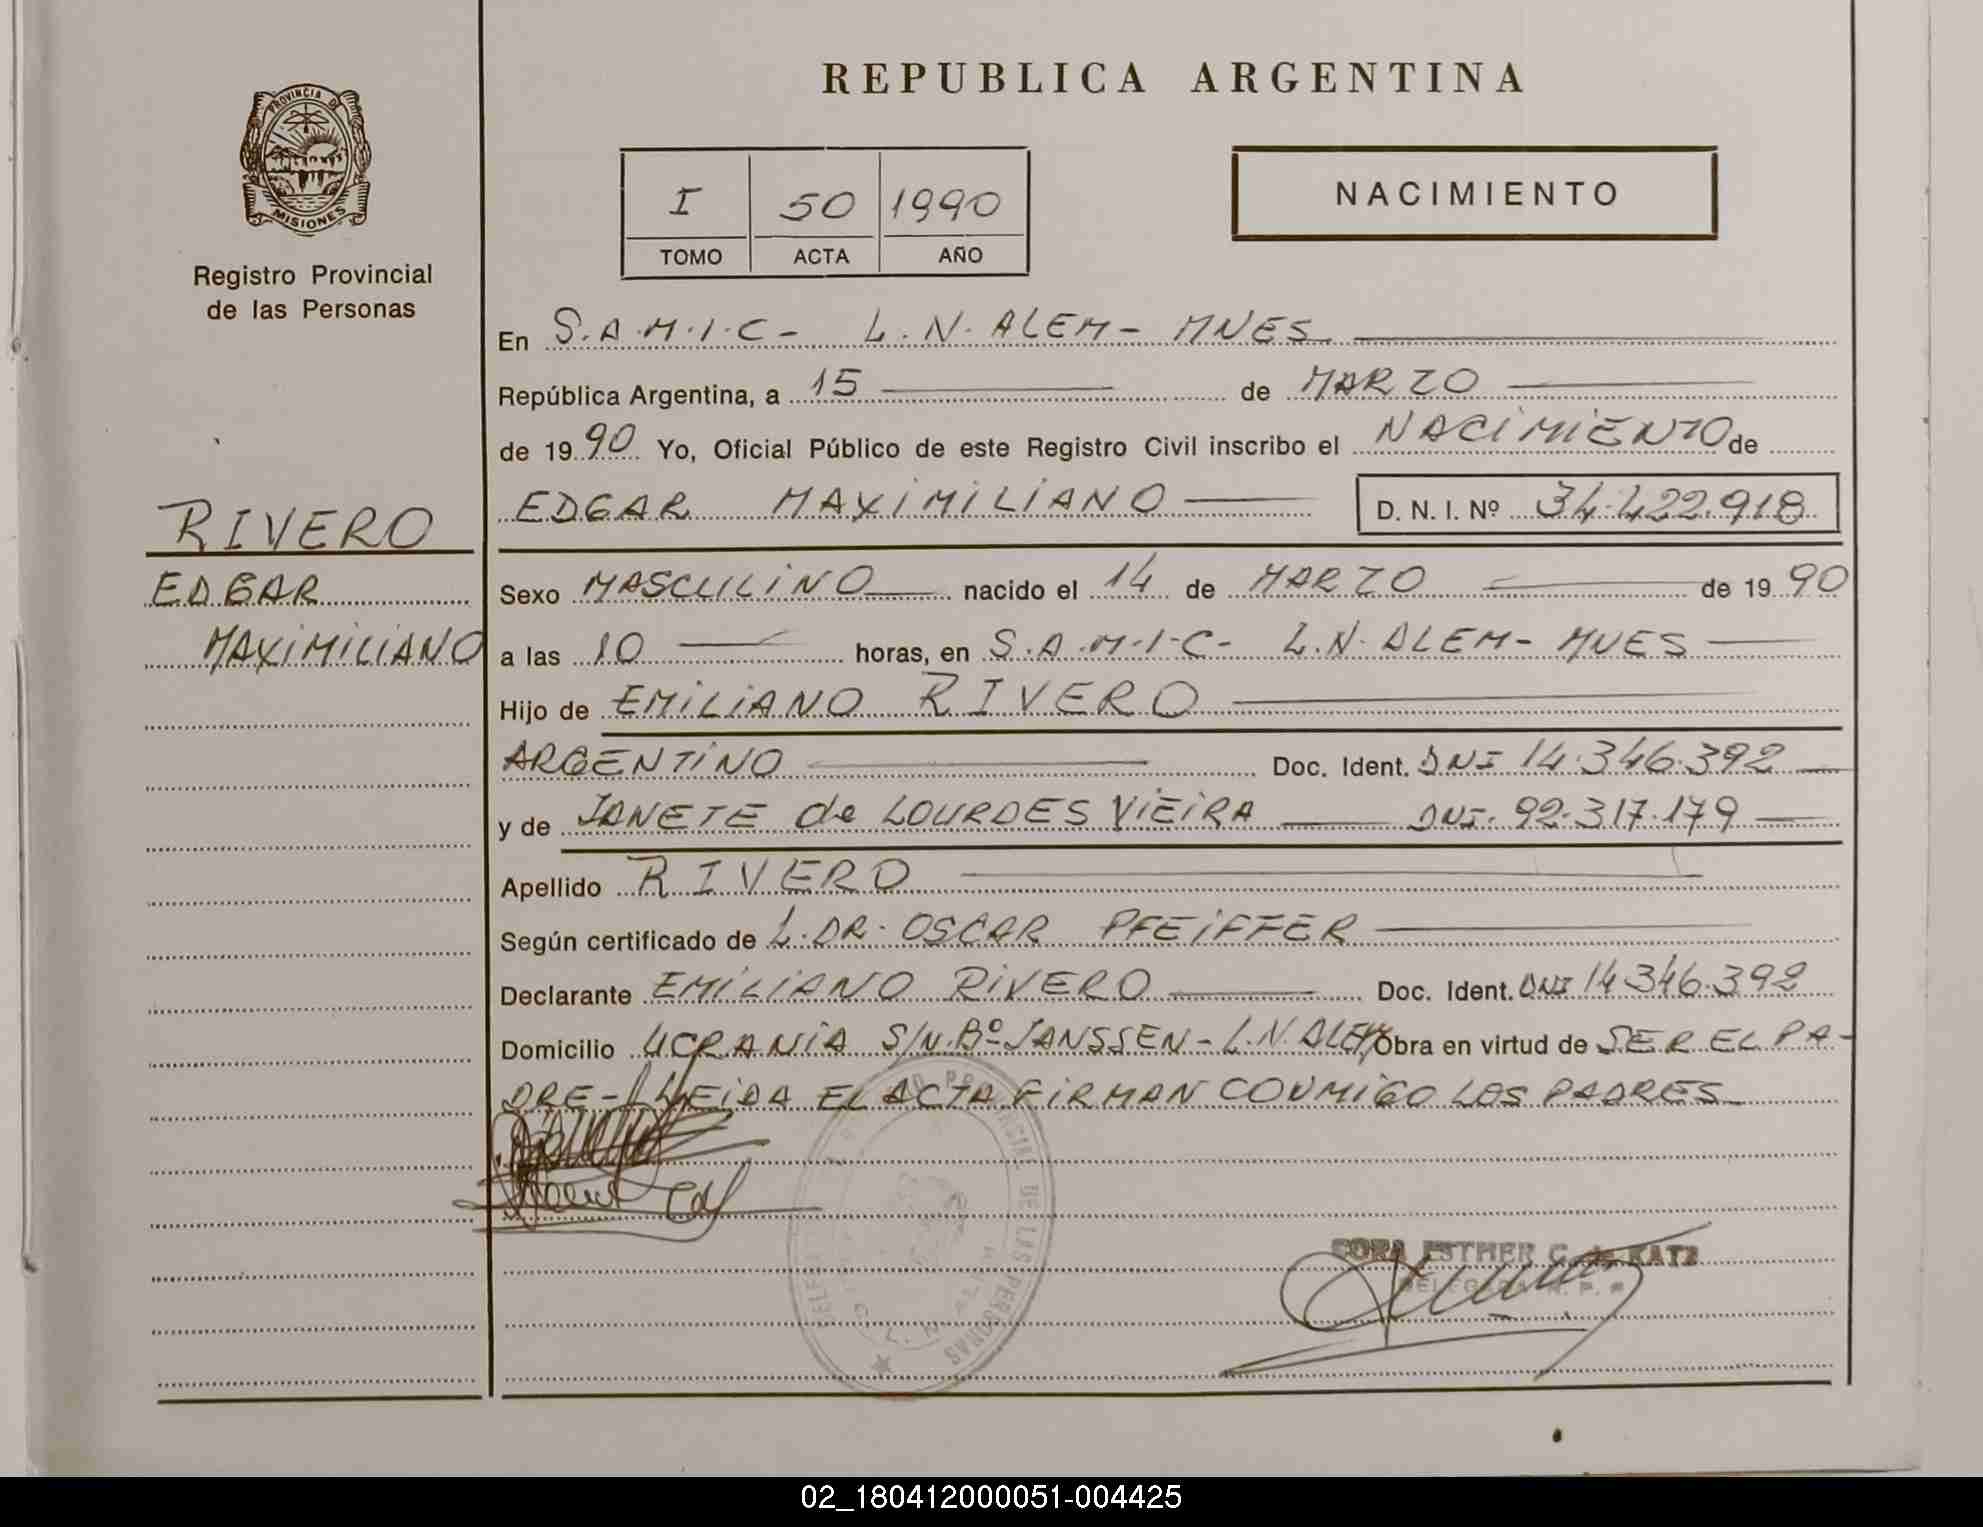 REPUBLICA ARGENTINA
PROVINCIA DE
MISIONES
Registro Provincial
de las Personas
I 50 1990
TOMO ACTA AÑO
NACIMIENTO
En S.A.M.I.C- L.N. ALEM- MNES.
República Argentina, a 15 de MARZO
de 1990 Yo, Oficial Público de este Registro Civil inscribo el NACIMIENTO de
EDGAR MAXIMILIANO D. N. I. Nº 34.422.918
RIVERO
EDGAR
MAXIMILIANO
Sexo MASCULINO nacido el 14 de MARZO de 1990
a las 10 horas, en S.A.M.I.C- L.N. ALEM- MNES
Hijo de EMILIANO RIVERO
ARGENTINO Doc. Ident. DNI 14.346.392
y de JANETE de LOURDES VIEIRA DNI. 92.317.179
Apellido RIVERO
Según certificado de L. DR. OSCAR PFEIFFER
Declarante EMILIANO RIVERO Doc. Ident. DNI 14.346.392
Domicilio UCRANIA S/N. Bº JANSSEN- L.N. ALEM Obra en virtud de SER EL PA-
DRE- LEIDA EL ACTA FIRMAN CONMIGO LOS PADRES
DE LAS PERSONAS
ESTHER C. de KATZ
02_180412000051-004425